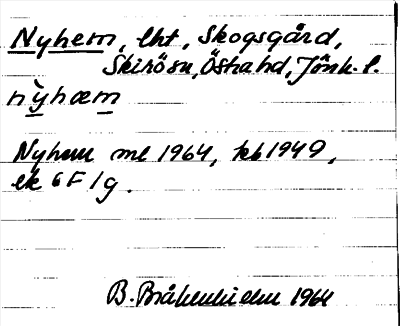 Nyhem, lht, Skogsgård,
Skirösn, Östrahd, Jönk. l.
nỳhæm
Nyhem ml 1964, kb 1949,
ek 6F 1g.
B. Bråkenhielm 1964